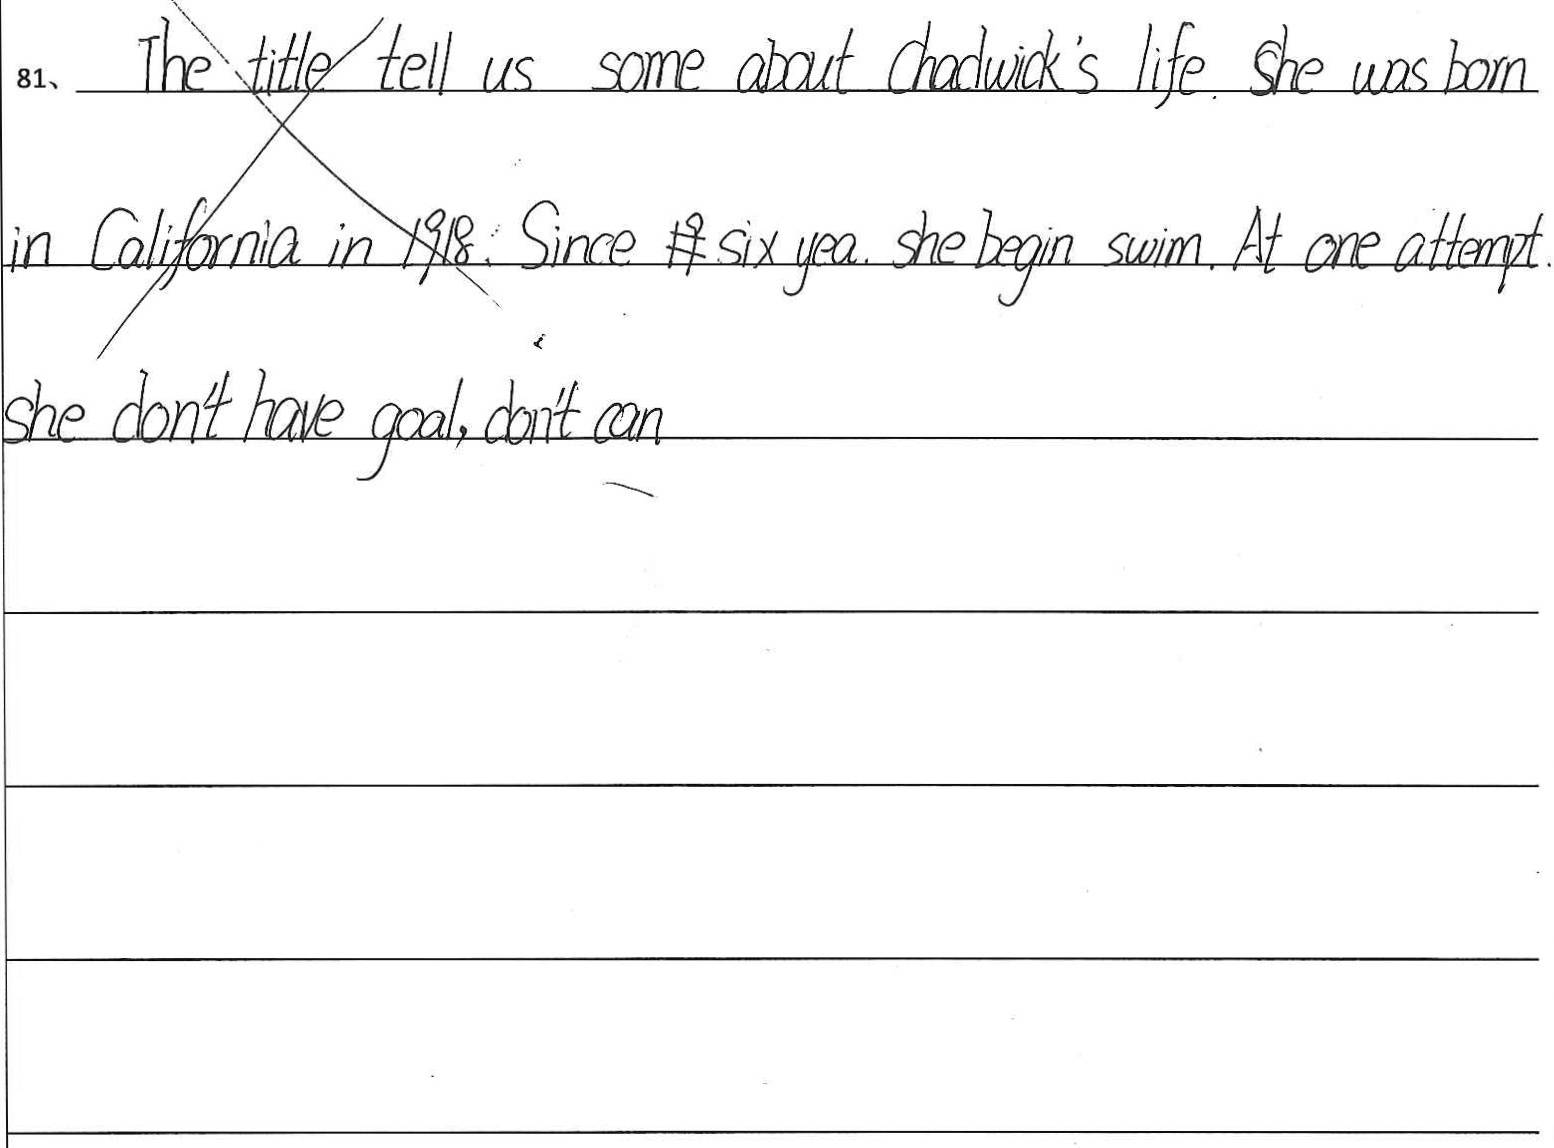 81、 The title tell us some about Chadwick's life. She was born
in California in 1918. Since six yea. she begin swim. At one attempt.
she don't have goal, don't can